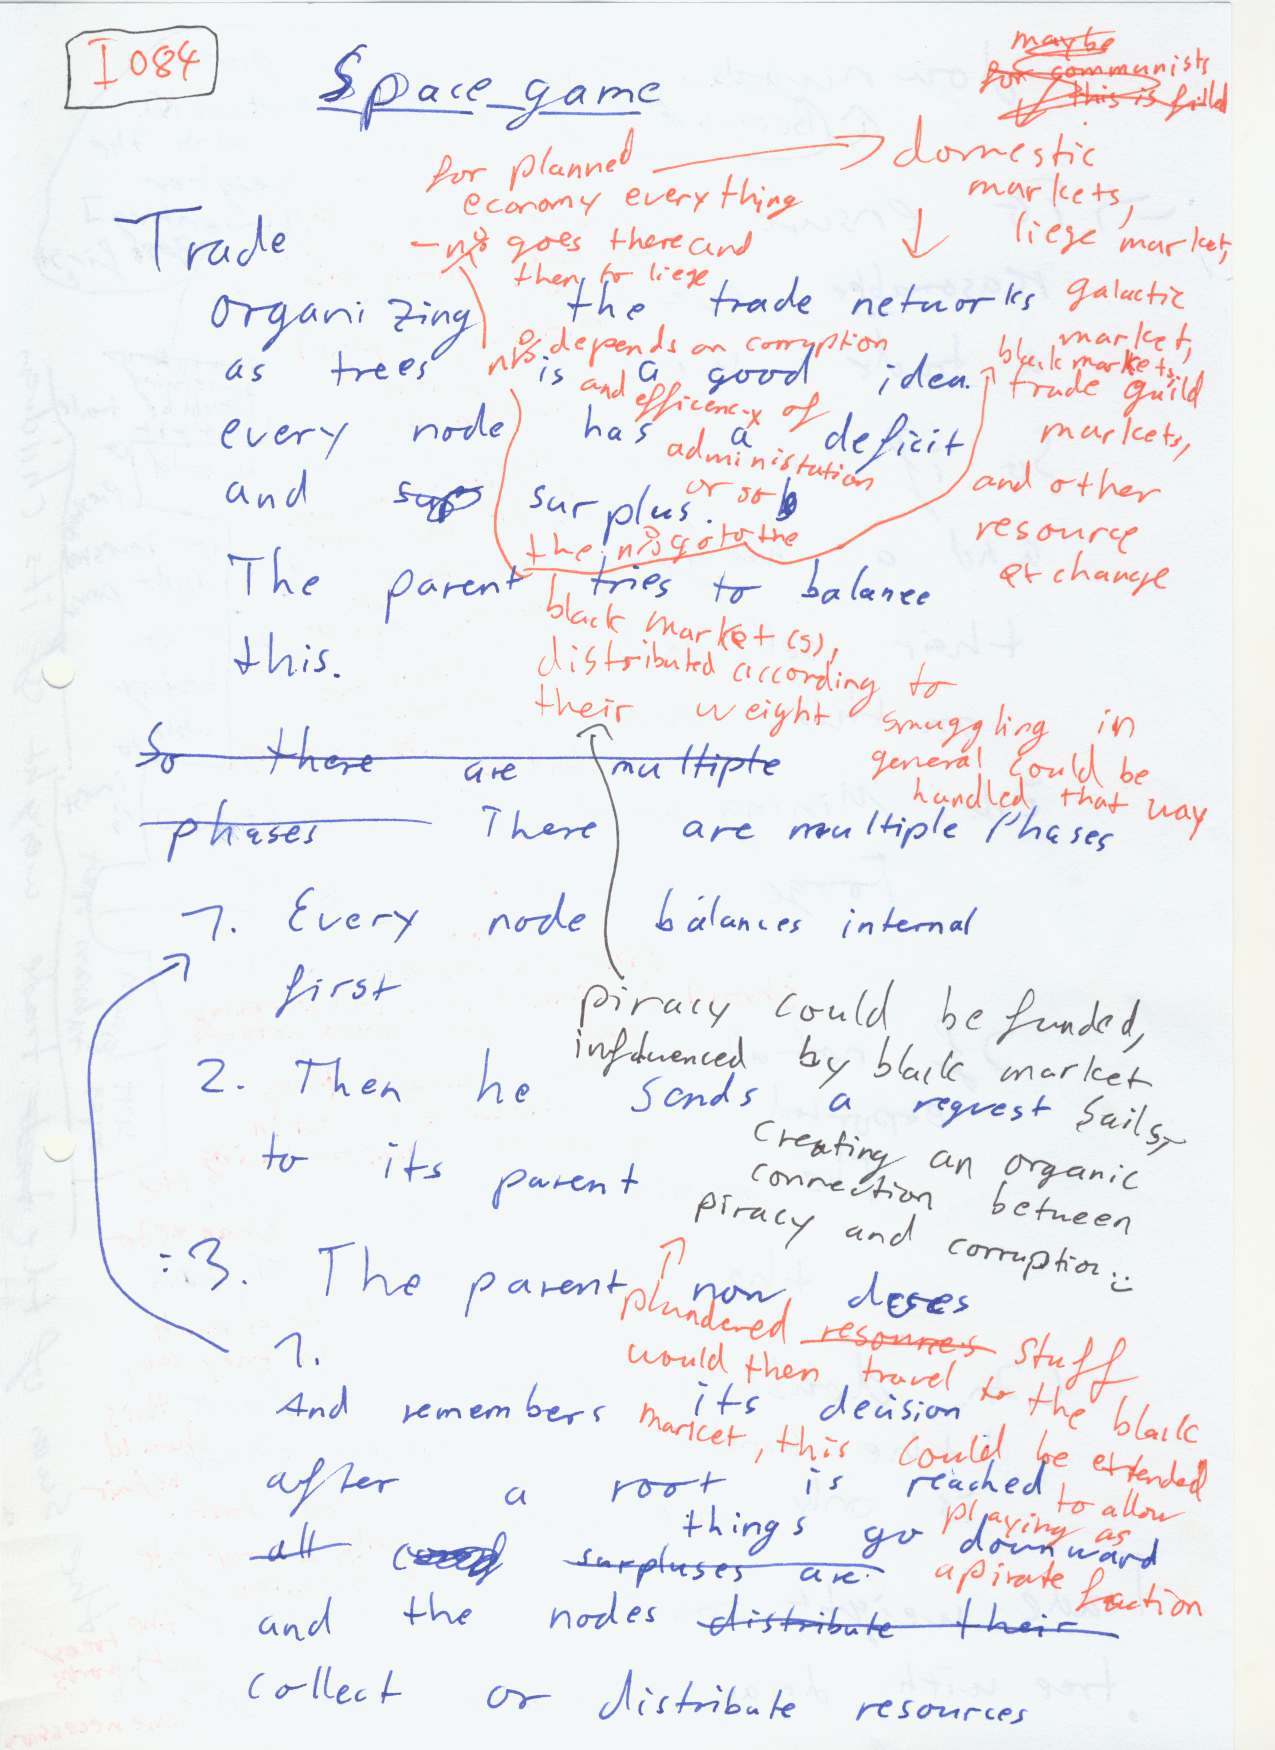 I 084
Space game
maybe
for communists
this is filled
for planned
economy everything
-n% goes there and
then to liege
domestic
markets,
liege market,
galactic
market,
black markets,
trade guild
markets,
and other
resource
exchange
Trade
organizing the trade networks
as trees is a good idea.
n% depends on corruption
and efficency of
administation
or so
every node has a deficit
and sup surplus.
the n% go to the
black market(s),
distributed according to
their weight
smuggling in
general could be
handled that way
The parent tries to balance
this.
So there are multiple
phases There are multiple Phases
1. Every node balances internal
first
piracy could be funded,
influenced by black market
sails,
creating an organic
connection between
piracy and corruption :)
2. Then he sends a request
to its parent
:3. The parent now does
1.
plundered resources stuff
would then travel to the black
market, this could be extended
to allow
playing as
a pirate faction
And remembers its decision
after a root is reached
things go downward
all surpluses are
and the nodes distribute their
collect or distribute resources